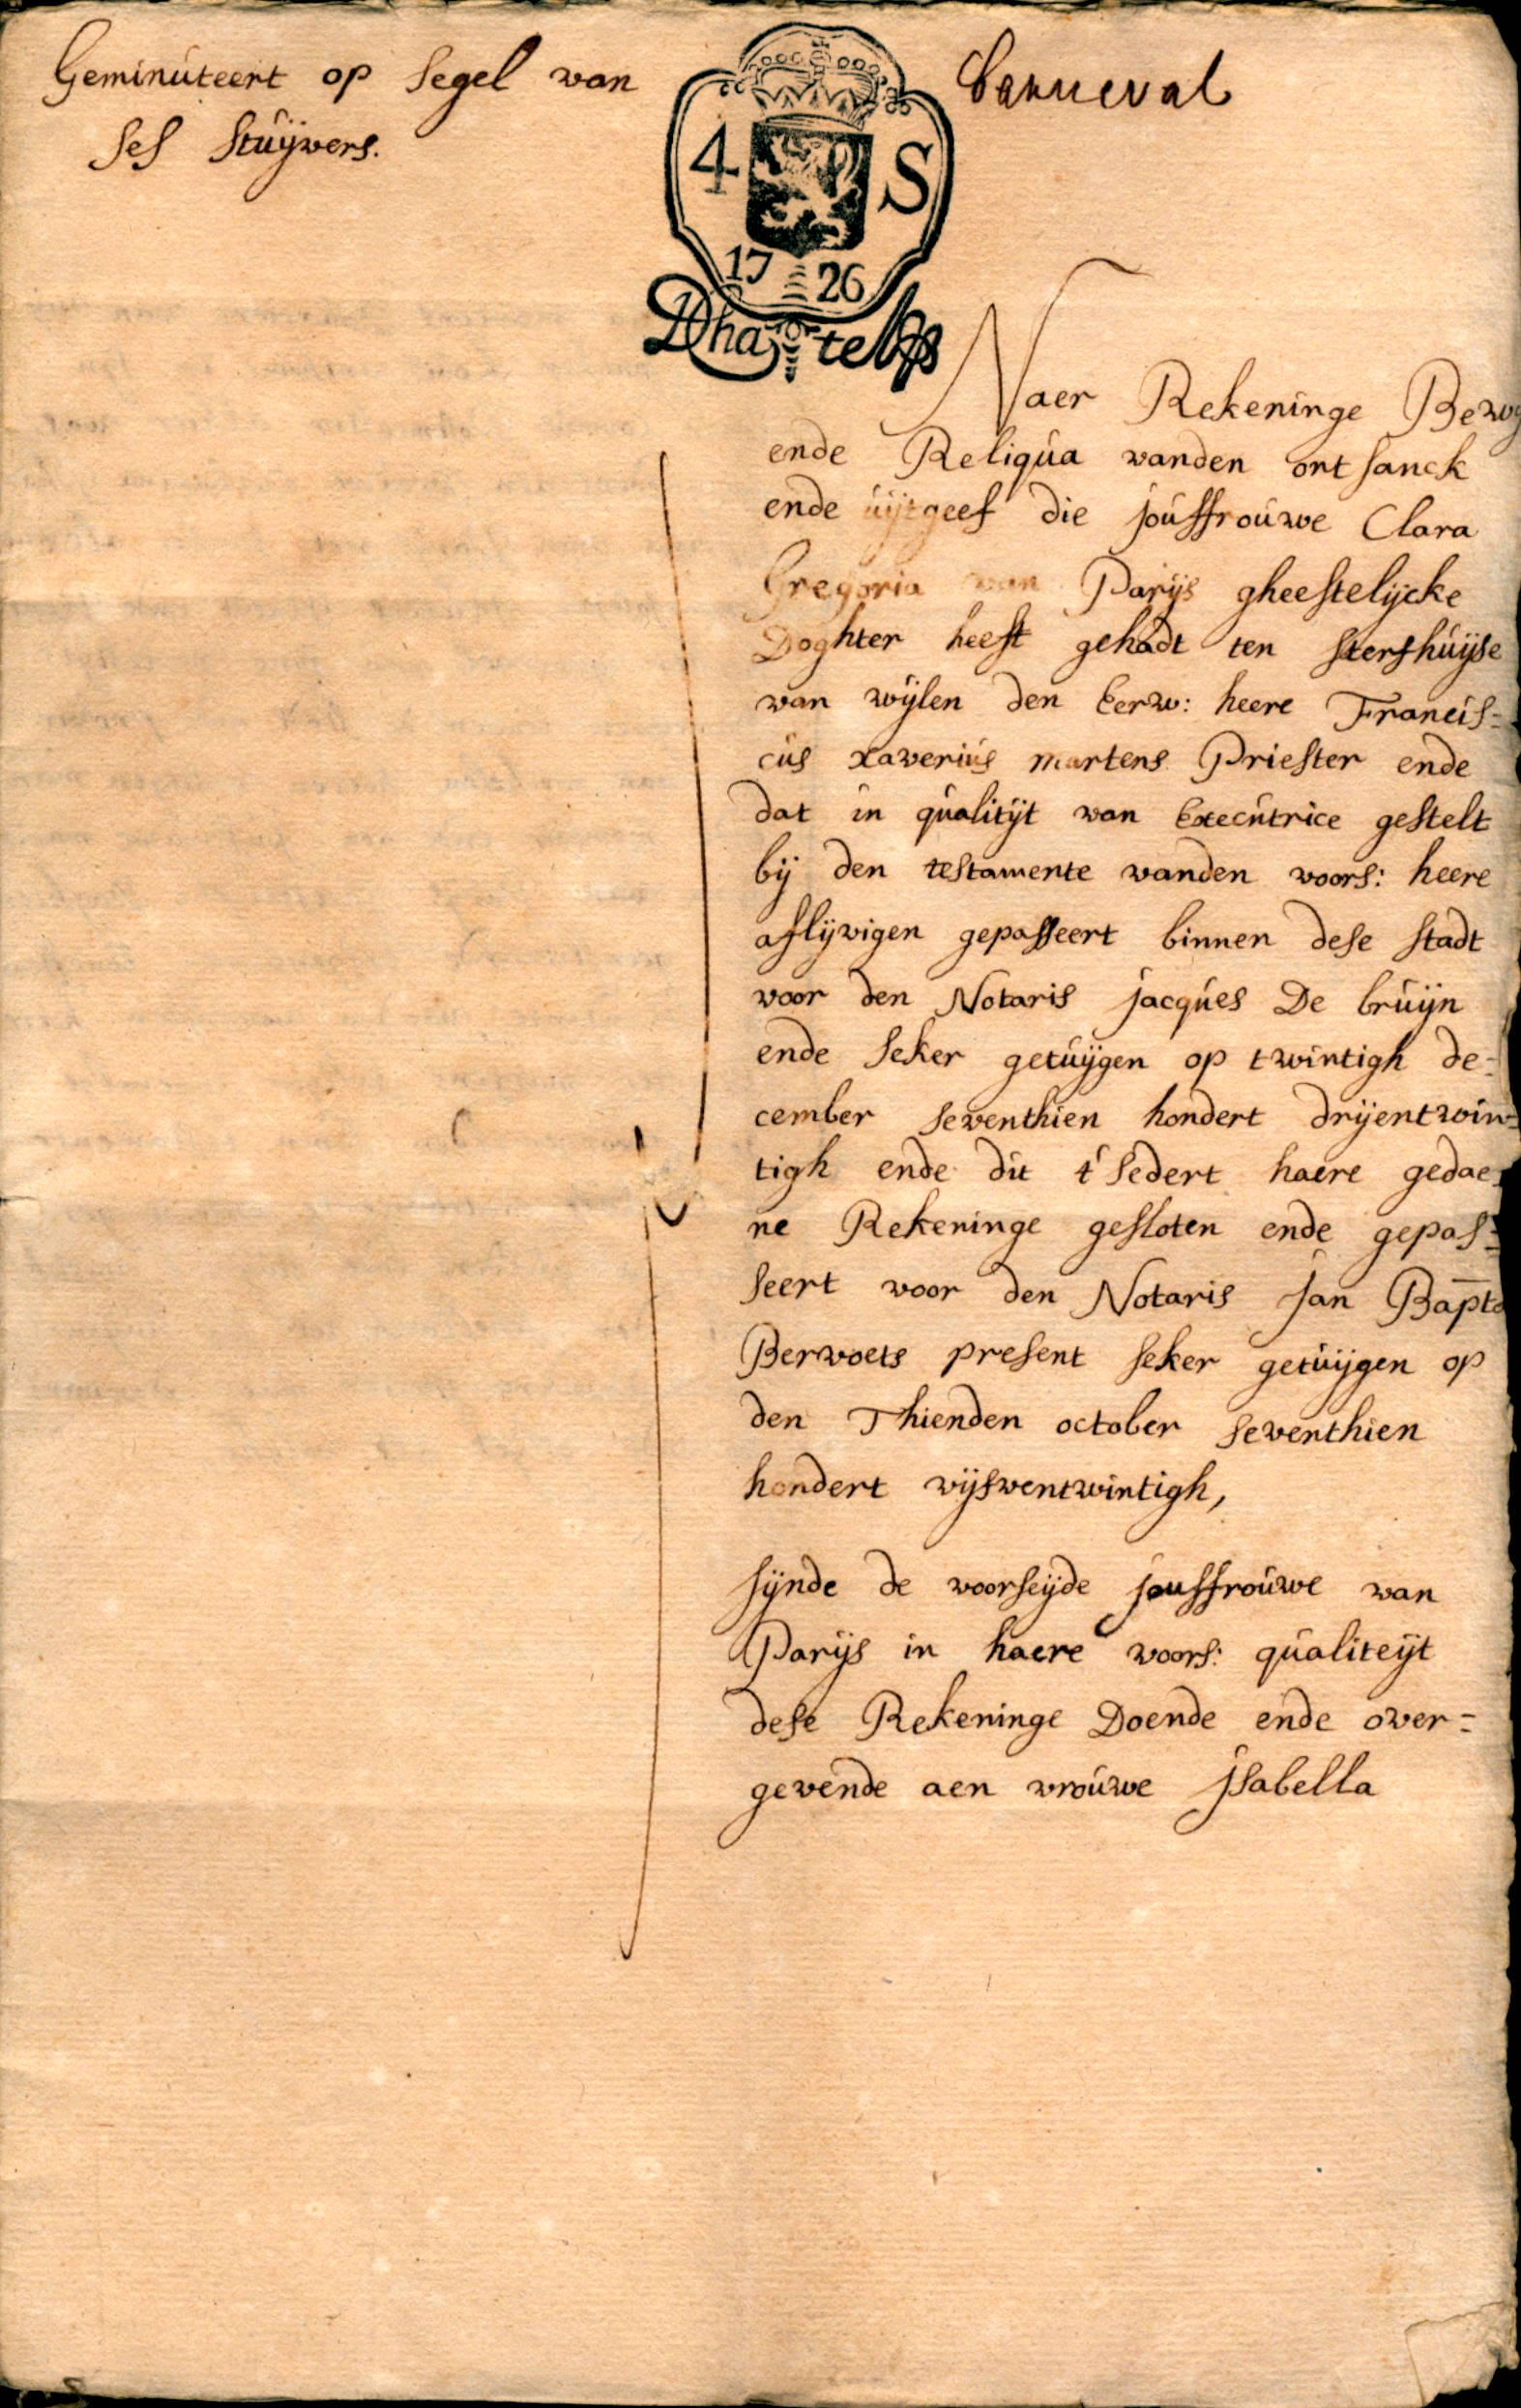 Geminuteert op segel van
ses stuijvers.
4 S
17 26
Naer Rekeninge
ende Reliqua vanden ontfanck
ende uijtgeef die jouffrouwe Clara
Gregoria van Parijs gheestelijcke
Doghter heeft gehadt ten sterfhuijse
van wijlen den Eerw: heere Francis=
cus Xaverius Martens Priester ende
dat in qualitijt van Executrice gestelt
bij den testamente vanden voors: heere
aflijvigen gepasseert binnen dese stadt
voor den Notaris jacques De bruijn
ende seker getuijgen op twintigh de=
cember seventhien hondert drijentwin=
tigh ende dit t'sedert haere gedae=
ne Rekeninge gesloten ende gepas=
seert voor den Notaris jan Bapta
Bervoets present seker getuijgen op
den Thienden october seventhien
hondert vijfventwintigh,
sijnde de voorseijde jouffrouwe van
Parijs in haere voors: qualiteijt
dese Rekeninge Doende ende over=
gevende aen vrouwe jsabella